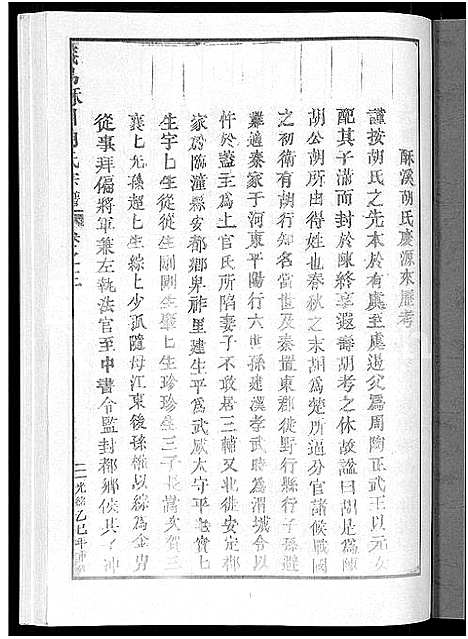 酥溪胡氏慶源來歷考
謹按胡氏之先本於有虞至虞遏父爲周陶正武王以元女
配其子滿而封於陳終享遐壽胡考之休故謚曰胡是爲陳
胡公胡所由得姓也春秋之末胡爲楚所逼分官諸侯戰國
之初衛有胡行知名當世及秦置東郡徙野行縣行子孫避
難適秦家于河東平陽行六世孫建漢孝武時爲渭城令以
忤於蓋主爲上官氏所陷妻子不敢居三輔又北徙安定郡
家於臨潼縣安都鄉卑祚里建生平爲武威太守平老實上
生宇上生從從生剛剛生肇上生珍珍生三子長嵩次賀三
襄上允孫超上生綜上少孤隨母江東後孫權以綜爲金曹
從事拜偏將軍兼左執法官至中書令監封都鄉侯其子冲
胡氏宗譜 卷之三
光緒乙巳年